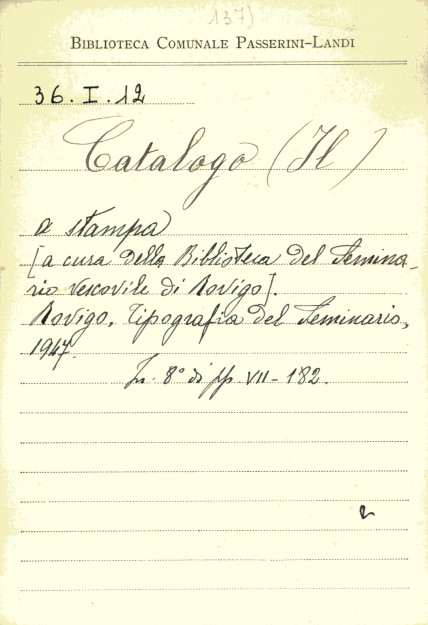 137)
BIBLIOTECA COMUNALE PASSERINI-LANDI
36. I. 12
Catalogo (Il)
a stampa
[a cura della Biblioteca del Semina-
rio Vescovile di Rovigo].
Rovigo, Tipografia del Seminario,
1947.
In 8° di pp VII - 182.